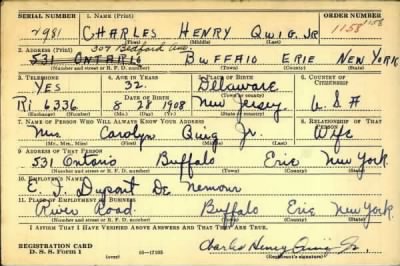 SERIAL NUMBER 1. NAME (Print) ORDER NUMBER
2981 CHARLES HENRY QUIG, JR 1158 1158
(First) (Middle) (Last)
2. ADDRESS (Print) 307 Bedford Ave.
531 ONTARIO BUFFALO ERIE NEW YORK
(Number and street or R. F. D. number) (Town) (County) (State)
3. TELEPHONE 4. AGE IN YEARS 5. PLACE OF BIRTH 6. COUNTRY OF CITIZENSHIP
YES 32 Delaware
DATE OF BIRTH (Town or county)
Ri 6336 8 28 1908 New Jersey U. S. A
(Exchange) (Number) (Mo.) (Day) (Yr.) (State or country)
7. NAME OF PERSON WHO WILL ALWAYS KNOW YOUR ADDRESS 8. RELATIONSHIP OF THAT PERSON
Mrs. Carolyn Quig Jr. Wife
(Mr., Mrs., Miss) (First) (Middle) (Last)
9. ADDRESS OF THAT PERSON
531 Ontario Buffalo Erie New York
(Number and street or R. F. D. number) (Town) (County) (State)
10. EMPLOYER'S NAME
E. I. Dupont De Nemour
11. PLACE OF EMPLOYMENT OR BUSINESS
River Road. Buffalo Erie New York.
(Number and street or R. F. D. number) (Town) (County) (State)
I AFFIRM THAT I HAVE VERIFIED ABOVE ANSWERS AND THAT THEY ARE TRUE.
REGISTRATION CARD
D. S. S. FORM 1 (over) 16—17105 Charles Henry Quig Jr.
(Registrant's signature)